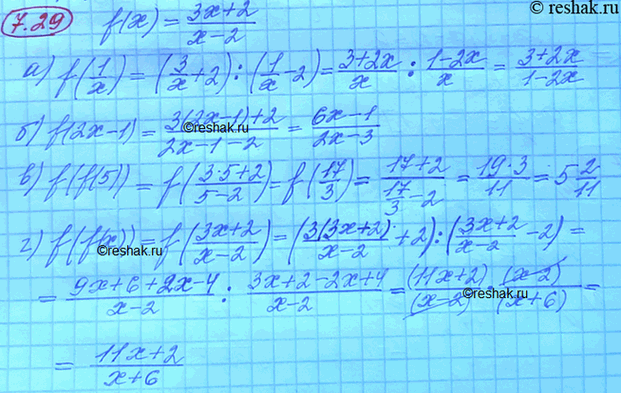 © reshak.ru
7.29 f(x) = (3x+2)/(x-2)
а) f(1/x) = (3/x + 2) : (1/x - 2) = (3+2x)/x : (1-2x)/x = (3+2x)/(1-2x)
б) f(2x-1) = (3(2x-1)+2)/(2x-1-2) = (6x-1)/(2x-3)
©reshak.ru
в) f(f(5)) = f((3·5+2)/(5-2)) = f(17/3) = (17+2)/(17/3 - 2) = (19·3)/11 = 5 2/11
г) f(f(x)) = f((3x+2)/(x-2)) = (3(3x+2)/(x-2) + 2) : ((3x+2)/(x-2) - 2) =
©reshak.ru
= (9x+6+2x-4)/(x-2) : (3x+2-2x+4)/(x-2) = (11x+2)/(x-2) · (x-2)/(x+6) =
©reshak.ru
= (11x+2)/(x+6)